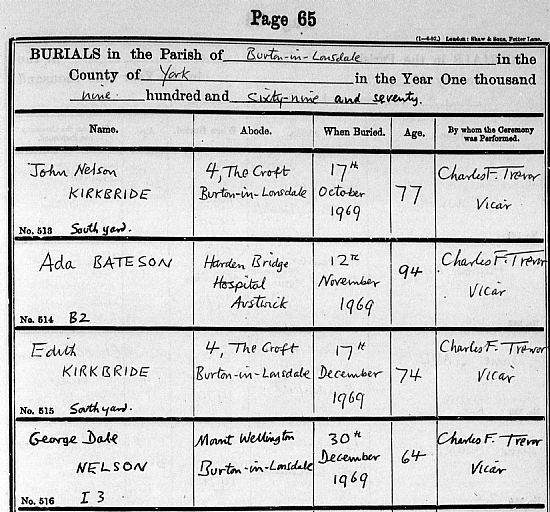 Page 65
(1—6-02.) London: Shaw & Sons, Fetter Lane.
BURIALS in the Parish of Burton-in-Lonsdale in the
County of York in the Year One thousand
nine hundred and sixty-nine and seventy.
Name. Abode. When Buried. Age. By whom the Ceremony was Performed.
John Nelson 4, The Croft 17th Charles F. Trevor
KIRKBRIDE Burton-in-Lonsdale October 77 Vicar
1969
No. 513 South yard.
Ada BATESON Harden Bridge 12th 94 Charles F. Trevor
Hospital November Vicar
Austwick 1969
No. 514 B2
Edith 4, The Croft 17th Charles F. Trevor
KIRKBRIDE Burton-in-Lonsdale December 74 Vicar
1969
No. 515 South yard.
George Dale Mount Wellington 30th Charles F. Trevor
NELSON Burton-in-Lonsdale December 64 Vicar
1969
No. 516 I 3